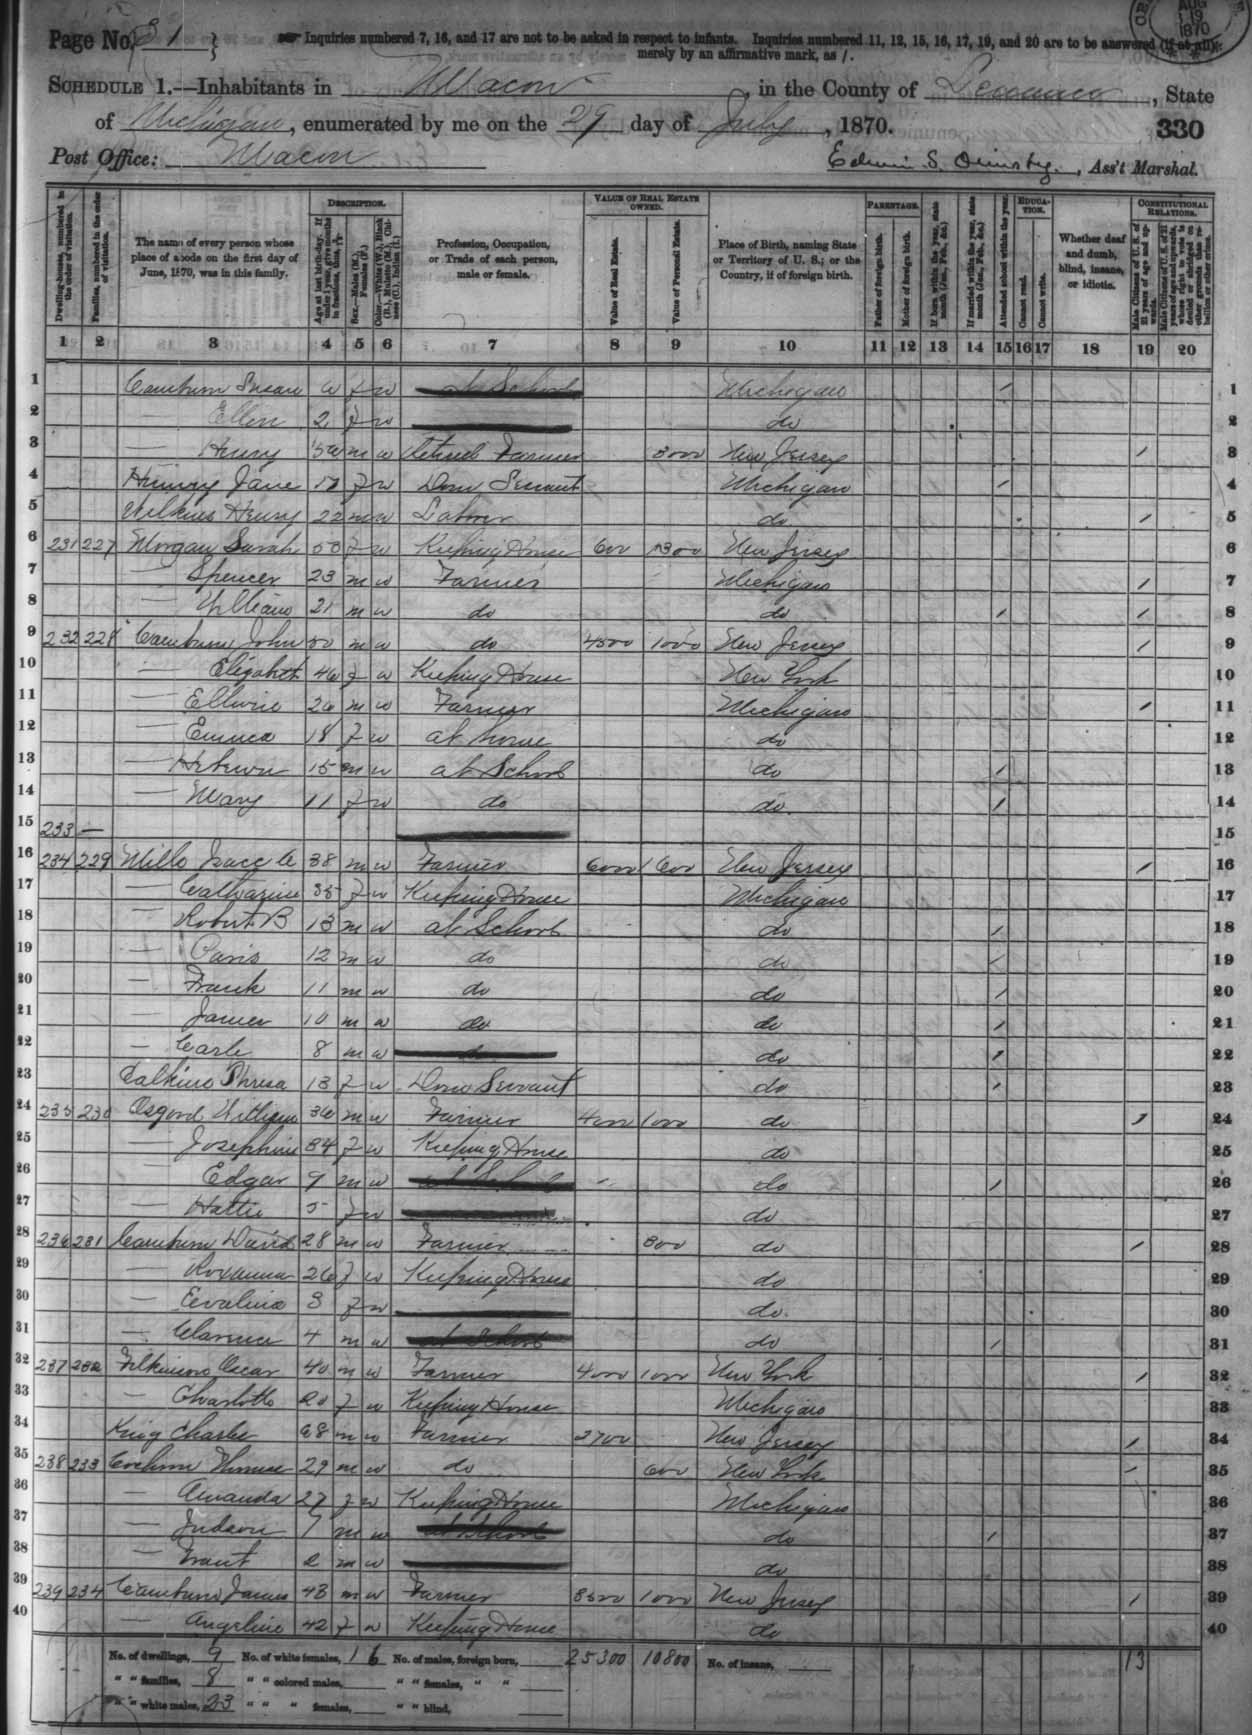 Page No. 31
Inquiries numbered 7, 16, and 17 are not to be asked in respect to infants. Inquiries numbered 11, 12, 15, 16, 17, 19, and 20 are to be answered (if at all)
merely by an affirmative mark, as /.
AUG 19 1870
SCHEDULE 1.—Inhabitants in Macon, in the County of Lenawee, State
of Michigan, enumerated by me on the 29 day of July, 1870.
330
Post Office: Macon
Edwin S. Ormsby, Ass't Marshal.
Dwelling-houses, numbered in the order of visitation.
Families, numbered in the order of visitation.
The name of every person whose place of abode on the first day of June, 1870, was in this family.
DESCRIPTION.
Age at last birth-day. If under 1 year, give months in fractions, thus, 
Sex.—Males (M.), Females (F.)
Color.—White (W.), Black (B.), Mulatto (M.), Chinese (C.), Indian (I.)
Profession, Occupation, or Trade of each person, male or female.
VALUE OF REAL ESTATE OWNED.
Value of Real Estate.
Value of Personal Estate.
Place of Birth, naming State or Territory of U. S.; or the Country, if of foreign birth.
PARENTAGE.
Father of foreign birth.
Mother of foreign birth.
If born within the year, state month (Jan., Feb., &c.)
If married within the year, state month (Jan., Feb., &c.)
Attended school within the year.
EDUCATION.
Cannot read.
Cannot write.
Whether deaf and dumb, blind, insane, or idiotic.
CONSTITUTIONAL RELATIONS.
Male Citizens of U. S. of 21 years of age and upwards.
Male Citizens of U. S. of 21 years of age and upwards, whose right to vote is denied or abridged on other grounds than rebellion or other crime.
1 2 3 4 5 6 7 8 9 10 11 12 13 14 15 16 17 18 19 20
1 Camburn Susan f w at School Michigan / 1
2 — Ellen 2 f w do 2
3 — Henry m w Retired Farmer 3000 New Jersey / 3
4 Jane f w Dom Servant Michigan / 4
5 Wilkins Henry 22 m w Laborer do / 5
6 231 227 Morgan Sarah 50 f w Keeping House 600 New Jersey 6
7 — Spencer 23 m w Farmer Michigan / 7
8 — William 21 m w do do / / 8
9 232 228 Camburn John 50 m w do 4500 1000 New Jersey / 9
10 — Elizabeth 46 f w Keeping House New York 10
11 — m w Farmer Michigan / 11
12 — Emma 18 f w at home do 12
13 — 15 m w at School do / 13
14 — Mary 11 f w do do / 14
15 233 — 15
16 234 229 Mills Isacc 38 m w Farmer 6000 1600 New Jersey / 16
17 — Catharine 35 f w Keeping House Michigan 17
18 — Robert B 13 m w at School do / 18
19 — Paris 12 m w do do / 19
20 — Frank 11 m w do do / 20
21 — James 10 m w do do / 21
22 — Carl 8 m w do do / 22
23 Calkins 13 f w Dom Servant do / 23
24 235 230 Osgood William 36 m w Farmer 4000 1000 do / 24
25 — Josephine 34 f w Keeping House do 25
26 — Edgar 9 m w at School do / 26
27 — Hattie 5 f w do 27
28 236 231 Camburn David 28 m w Farmer 800 do / 28
29 — Roxanna 26 f w Keeping House do 29
30 — Evalina f w do 30
31 — Clarence 4 m w at School do / 31
32 237 232 Oscar 40 m w Farmer 4000 1000 New York / 32
33 — Charlotte f w Keeping House Michigan 33
34 King Charles 68 m w Farmer 2700 New Jersey / 34
35 238 233 29 m w do 600 New York / 35
36 — Amanda 27 f w Keeping House Michigan 36
37 — Judson 7 m w at School do / 37
38 — Grant 2 m w do 38
39 239 234 Camburn James 43 m w Farmer 3500 1000 New Jersey / 39
40 — Angeline 42 f w Keeping House do 40
No. of dwellings, 9 No. of white females, 16 No. of males, foreign born, 25300 10800 No. of insane, 13
" " families, 8 " " colored males, " " females, " "
" " white males, 23 " " " females, " " blind,